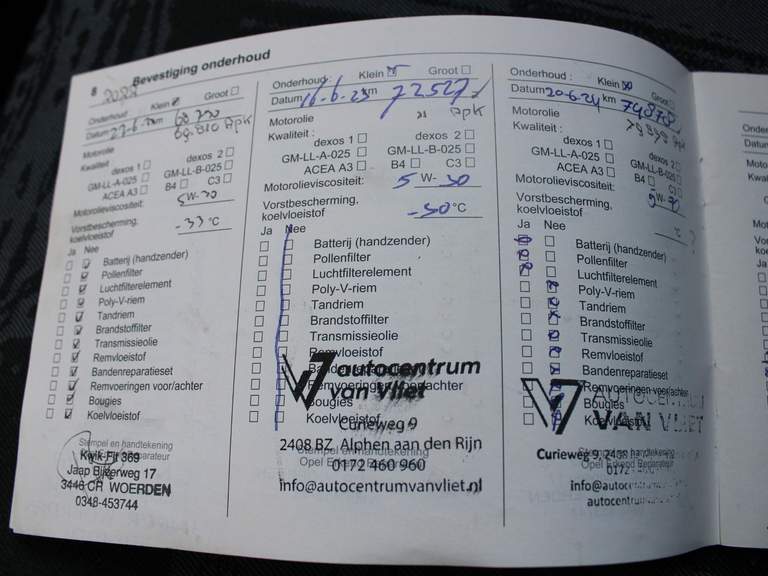 8 Bevestiging onderhoud
Onderhoud: Klein Groot
Datum 27-6- km
69.810 Apk
Motorolie
Kwaliteit:
dexos 1 dexos 2
GM-LL-A-025 GM-LL-B-025
ACEA A3 B4 C3
Motorolieviscositeit: 5W-30
Vorstbescherming,
koelvloeistof -33 °C
Ja Nee
Batterij (handzender)
Pollenfilter
Luchtfilterelement
Poly-V-riem
Tandriem
Brandstoffilter
Transmissieolie
Remvloeistof
Bandenreparatieset
Remvoeringen voor/achter
Bougies
Koelvloeistof
Stempel en handtekening
Kwik-Fit 369
Jaap Bijzerweg 17
3446 CR WOERDEN
0348-453744
Onderhoud: Klein Groot
Datum 16-6-23 km 72527
Motorolie Apk
Kwaliteit:
dexos 1 dexos 2
GM-LL-A-025 GM-LL-B-025
ACEA A3 B4 C3
Motorolieviscositeit: 5 W- 30
Vorstbescherming,
koelvloeistof -30 °C
Ja Nee
Batterij (handzender)
Pollenfilter
Luchtfilterelement
Poly-V-riem
Tandriem
Brandstoffilter
Transmissieolie
Remvloeistof
Bandenreparatieset
Remvoeringen voor/achter
Bougies
Koelvloeistof
autocentrum
van Vliet
Curieweg 9
2408 BZ Alphen aan den Rijn
Stempel en handtekening
Opel Erkend Reparateur
0172 460 960
info@autocentrumvanvliet.nl
Onderhoud: Klein Groot
Datum 20-6-24 km 74878
Motorolie Apk
Kwaliteit:
dexos 1 dexos 2
GM-LL-A-025 GM-LL-B-025
ACEA A3 B4 C3
Motorolieviscositeit: W-
Vorstbescherming,
koelvloeistof °C ?
Ja Nee
Batterij (handzender)
Pollenfilter
Luchtfilterelement
Poly-V-riem
Tandriem
Brandstoffilter
Transmissieolie
Remvloeistof
Bandenreparatieset
Remvoeringen voor/achter
Bougies
Koelvloeistof
AUTOCENTRUM
VAN VLIET
Curieweg 9, 2408
Opel Erkend Reparateur
0172
info@autoc
autocentrum